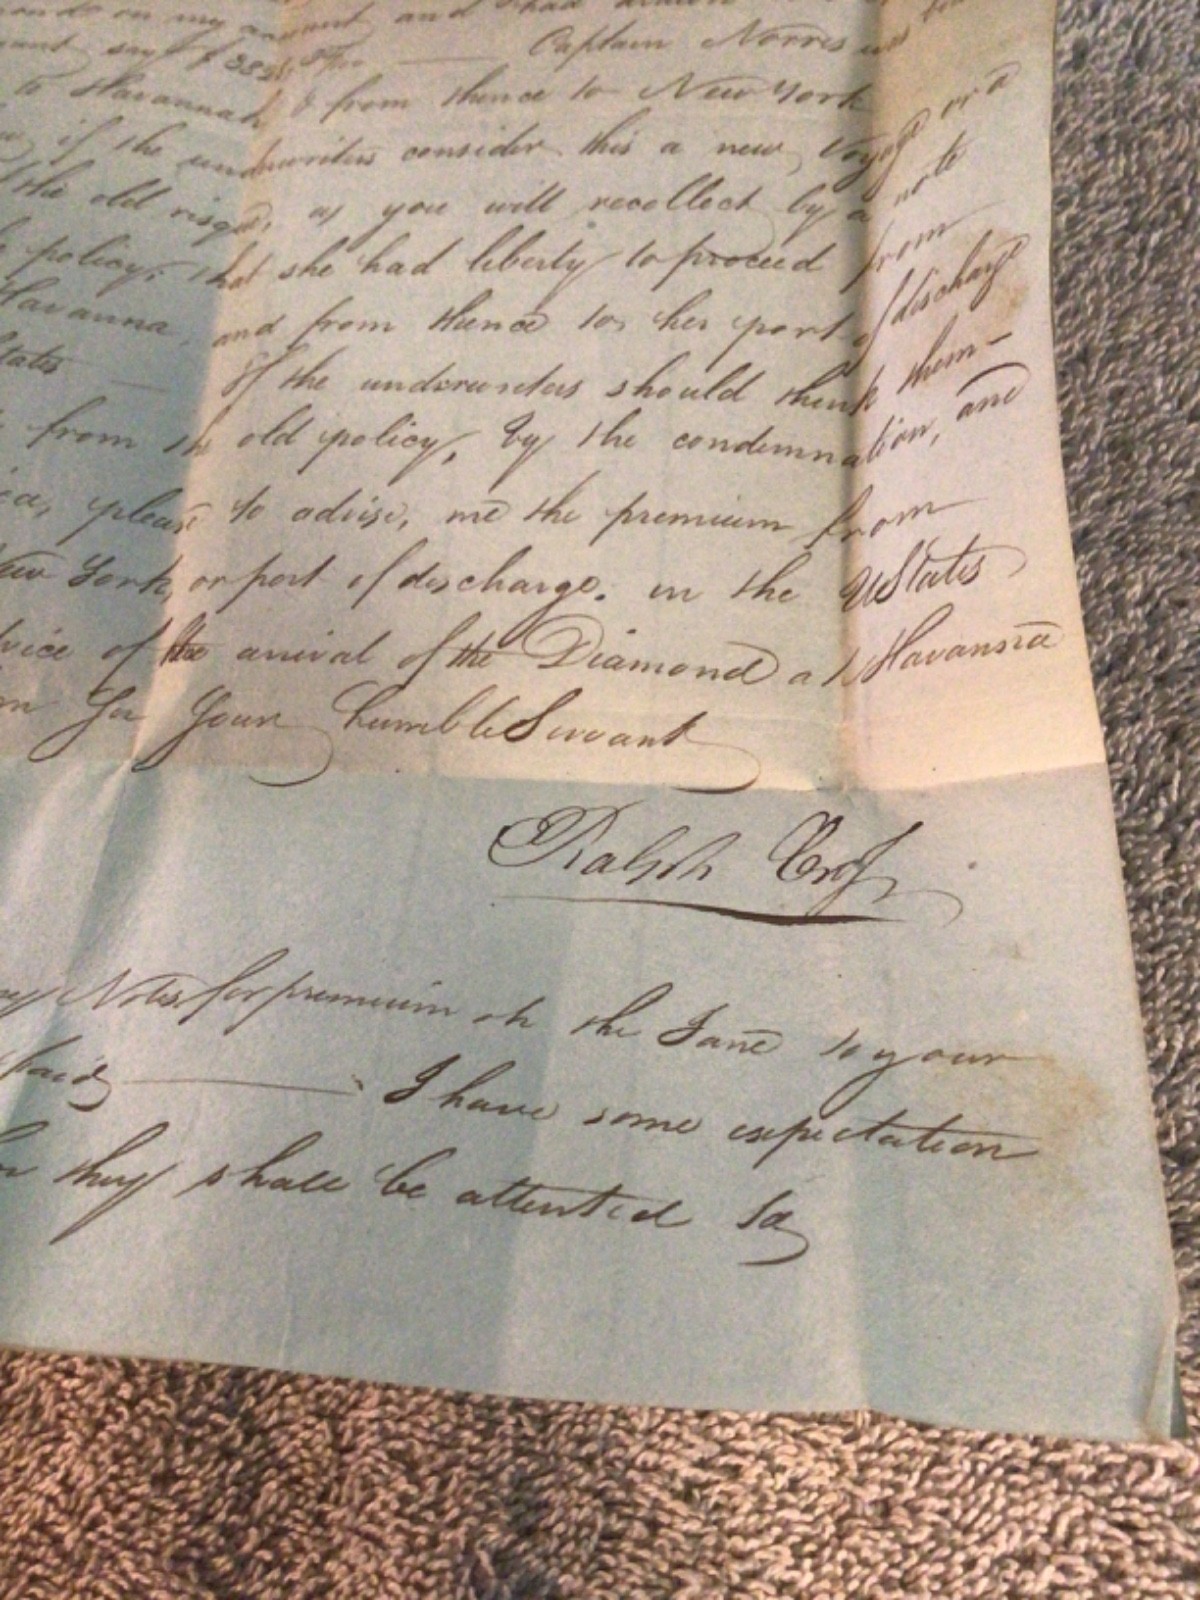 on my account and
say $ Captain Norris was
to Havannah & from thence to New York
if the underwriters consider this a new Voyage or a
the old risque, as you will recollect by a note
policy, that she had liberty to proceed from
Havanna and from thence to her port of discharge
States — If the underwriters should think them-
from the old policy, by the condemnation, and
please to advise, me the premium from
New York, or port of discharge. in the UStates
of the arrival of the Diamond at Havanna
Your humble Servant
Ralph
Notes for premium on the Jane to your
paid — I have some expectation
they shall be attented to